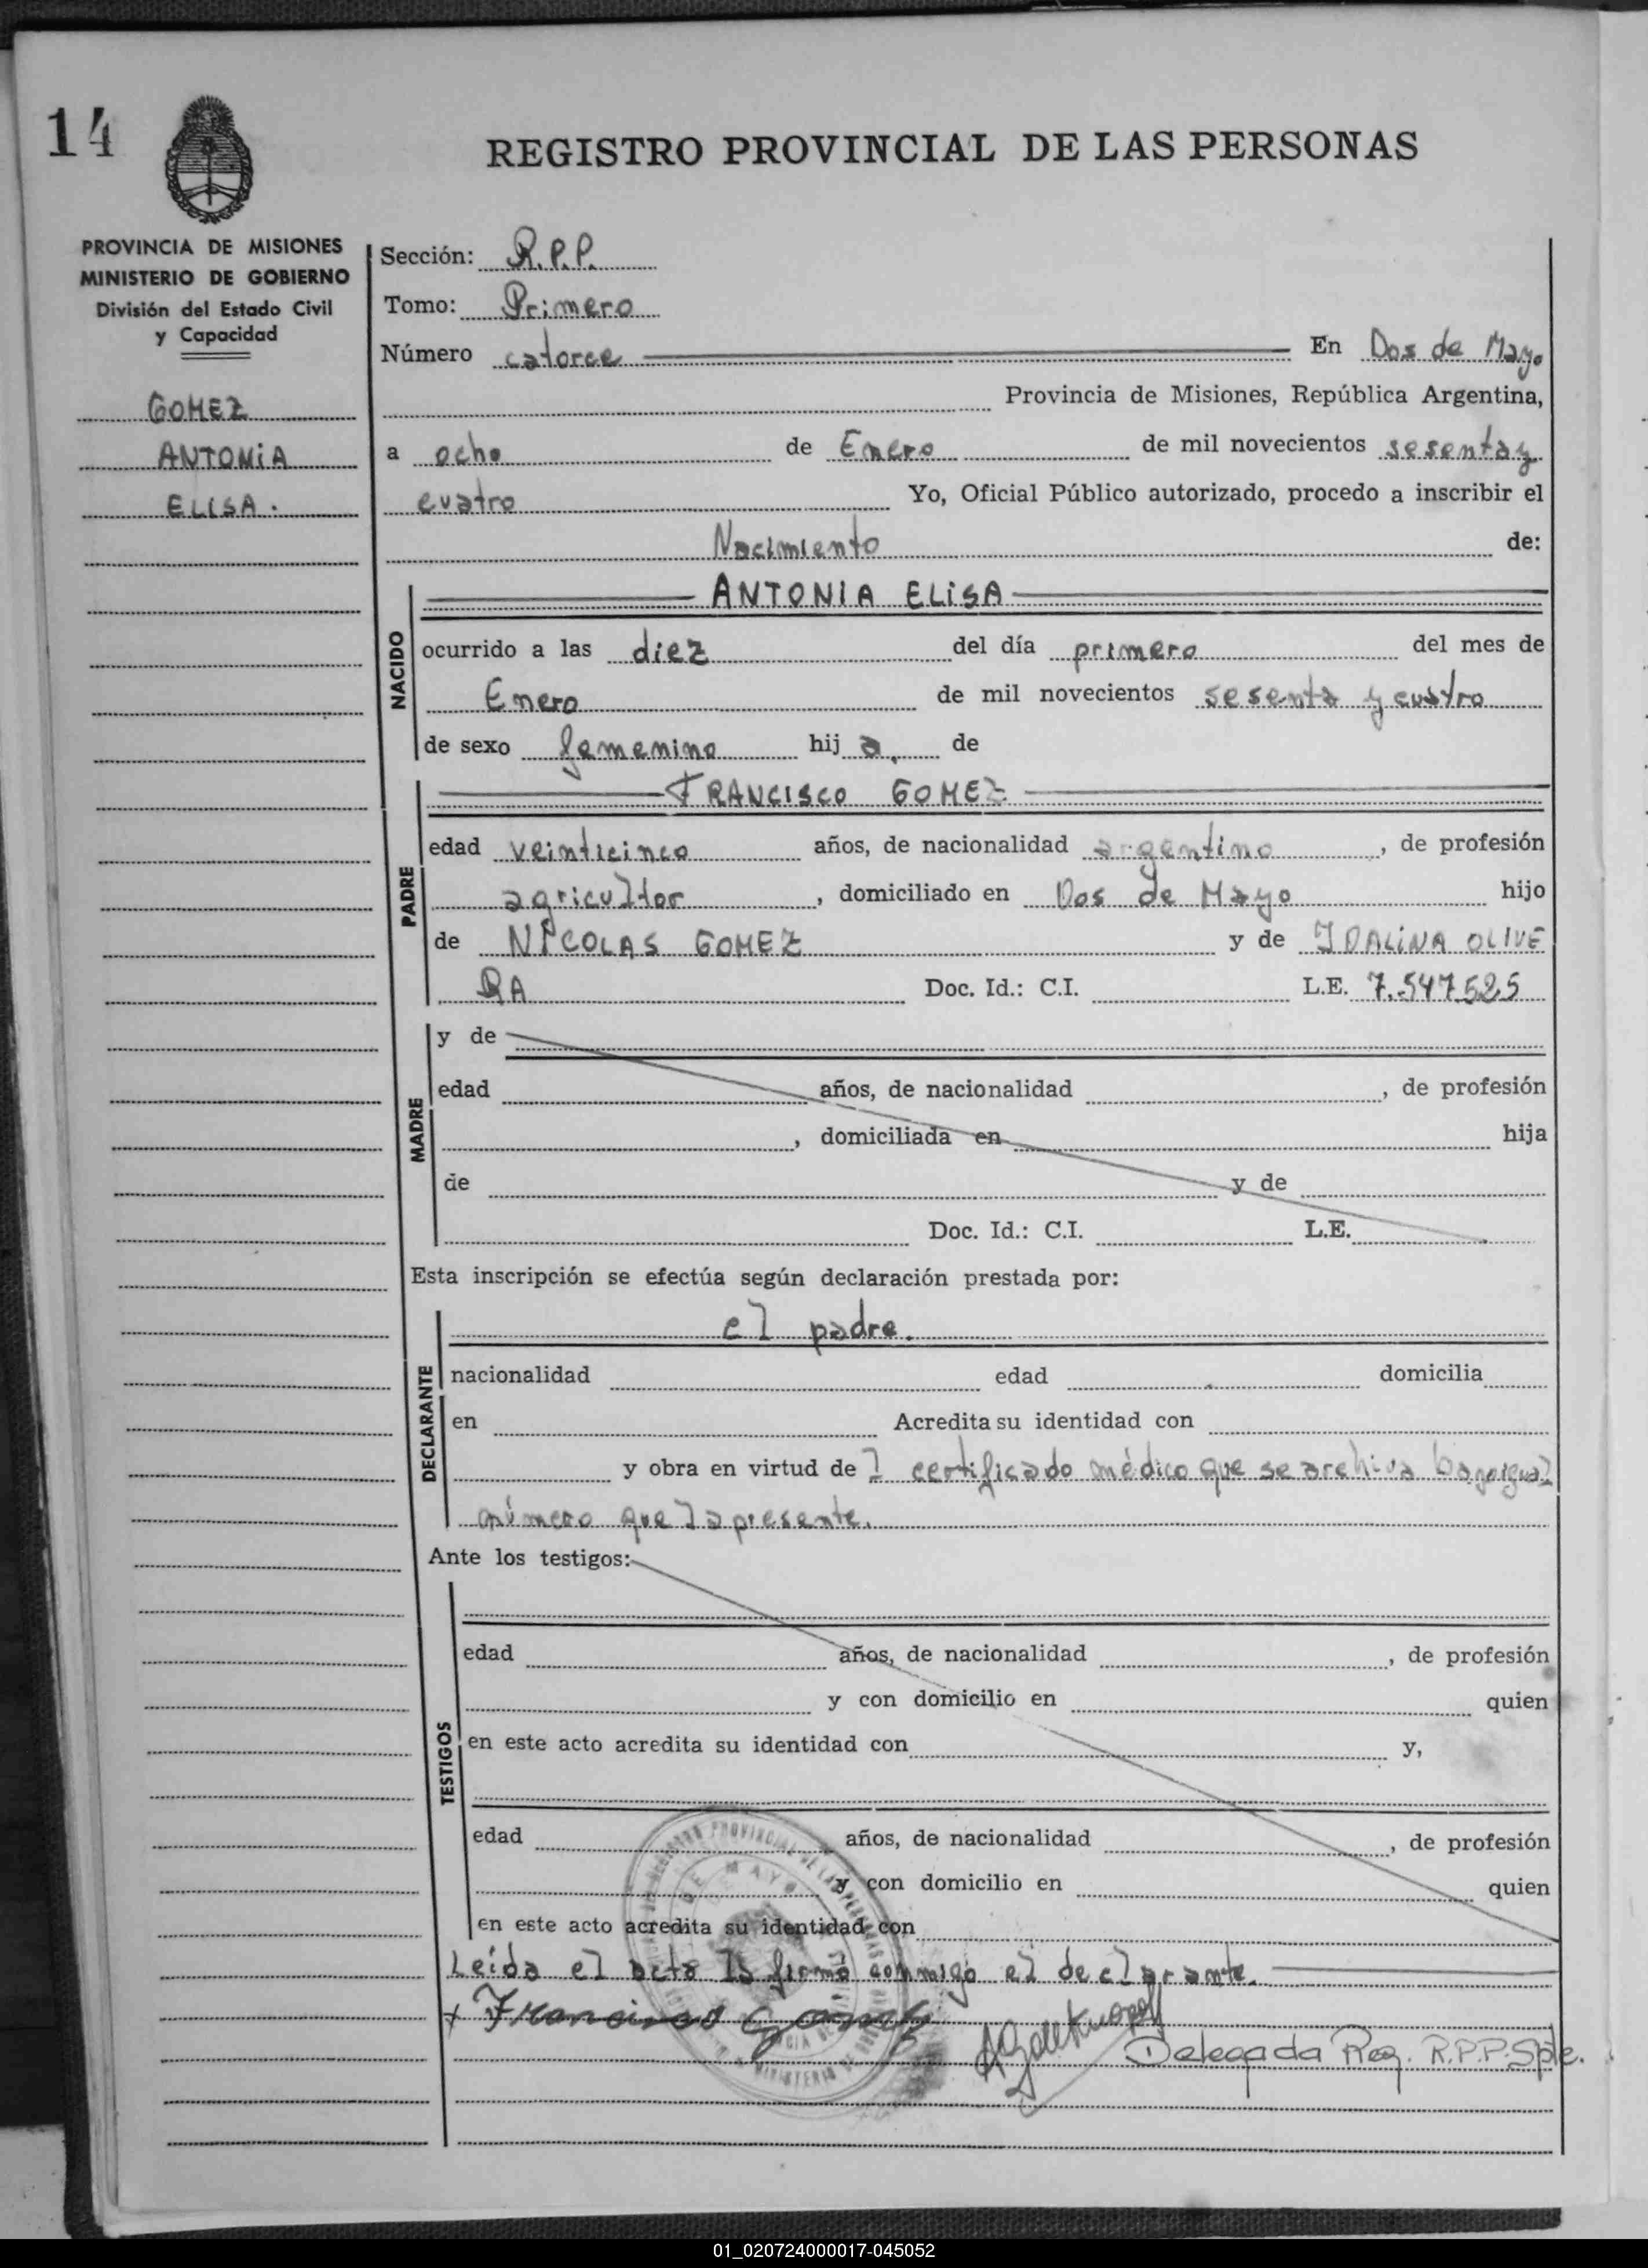 14
REGISTRO PROVINCIAL DE LAS PERSONAS
PROVINCIA DE MISIONES
MINISTERIO DE GOBIERNO
División del Estado Civil
y Capacidad
GOMEZ
ANTONIA
ELISA.
Sección: R.P.P.
Tomo: Primero
Número catorce En Dos de Mayo
Provincia de Misiones, República Argentina,
a ocho de Enero de mil novecientos sesenta y
cuatro Yo, Oficial Público autorizado, procedo a inscribir el
Nacimiento de:
NACIDO
ANTONIA ELISA
ocurrido a las diez del día primero del mes de
Enero de mil novecientos sesenta y cuatro
de sexo femenino hij a, de
PADRE
FRANCISCO GOMEZ
edad veinticinco años, de nacionalidad argentino, de profesión
agricultor, domiciliado en Dos de Mayo hijo
de NICOLAS GOMEZ y de IDALINA OLIVE
RA Doc. Id.: C.I. L.E. 7.547525
MADRE
y de
edad años, de nacionalidad , de profesión
, domiciliada en hija
de y de
Doc. Id.: C.I. L.E.
Esta inscripción se efectúa según declaración prestada por:
DECLARANTE
el padre.
nacionalidad edad domicilia
en Acredita su identidad con
y obra en virtud de l certificado médico que se archiva bajo igual
número que la presente.
Ante los testigos:
TESTIGOS
edad años, de nacionalidad , de profesión
y con domicilio en quien
en este acto acredita su identidad con y,
edad años, de nacionalidad , de profesión
y con domicilio en quien
en este acto acredita su identidad con
Leída el acta la firmó conmigo el declarante.
x Francisco Gomez
Delegada Reg. R.P.P. Sple.
01_020724000017-045052